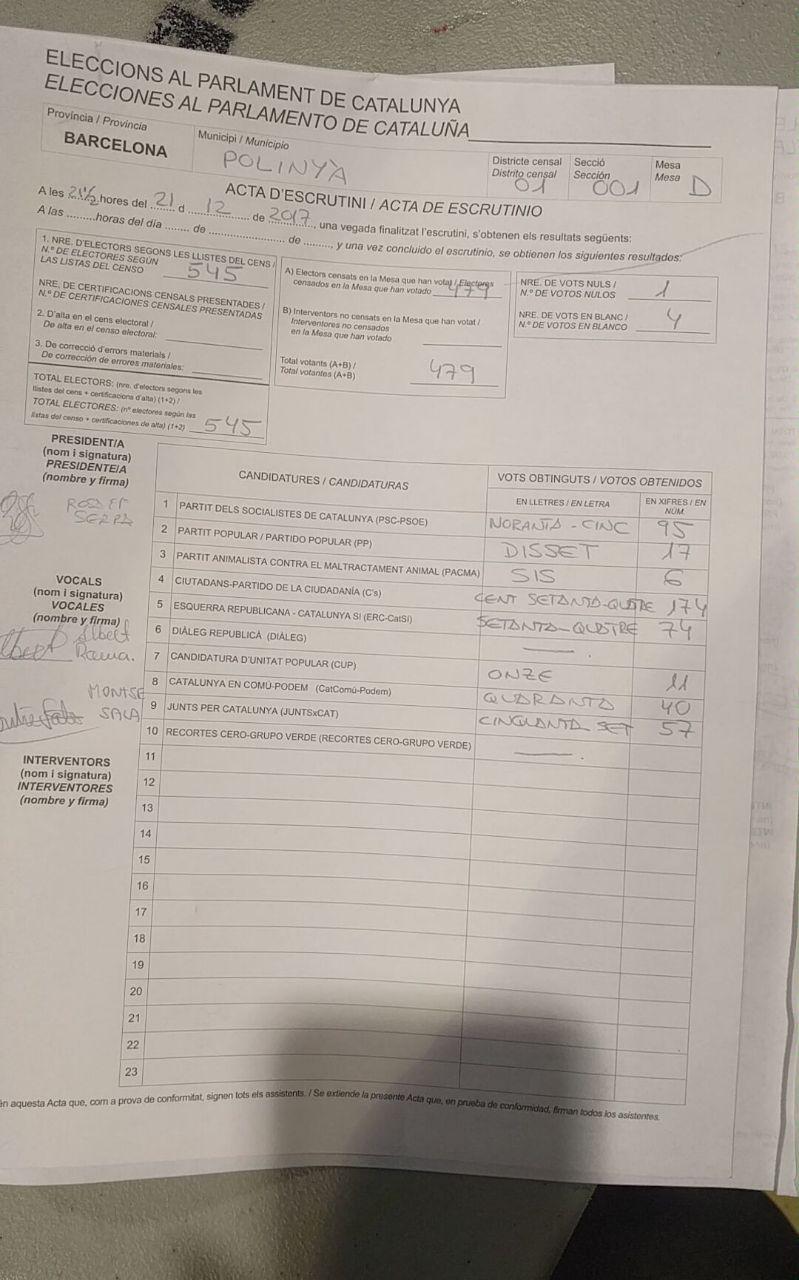 ELECCIONS AL PARLAMENT DE CATALUNYA
ELECCIONES AL PARLAMENTO DE CATALUÑA
Província / Provincia
BARCELONA
Municipi / Municipio
POLINYÀ
Districte censal
Distrito censal
01
Secció
Sección
001
Mesa
Mesa
D
ACTA D'ESCRUTINI / ACTA DE ESCRUTINIO
A les 21½ hores del 21 d 12 de 2017, una vegada finalitzat l'escrutini, s'obtenen els resultats següents:
A las .........horas del día ........ de ........................ de ......... y una vez concluido el escrutinio, se obtienen los siguientes resultados:
1. NRE. D'ELECTORS SEGONS LES LLISTES DEL CENS /
N.º DE ELECTORES SEGÚN
LAS LISTAS DEL CENSO
545
NRE. DE CERTIFICACIONS CENSALS PRESENTADES /
N.º DE CERTIFICACIONES CENSALES PRESENTADAS
2. D'alta en el cens electoral /
De alta en el censo electoral:
3. De correcció d'errors materials /
De corrección de errores materiales:
TOTAL ELECTORS: (nre. d'electors segons les
llistes del cens + certificacions d'alta) (1+2) /
TOTAL ELECTORES: (nº electores según las
listas del censo + certificaciones de alta) (1+2) 545
A) Electors censats en la Mesa que han votat / Electores
censados en la Mesa que han votado 479
B) Interventors no censats en la Mesa que han votat /
Interventores no censados
en la Mesa que han votado
Total votants (A+B) /
Total votantes (A+B)
479
NRE. DE VOTS NULS /
N.º DE VOTOS NULOS 1
NRE. DE VOTS EN BLANC /
N.º DE VOTOS EN BLANCO 4
PRESIDENT/A
(nom i signatura)
PRESIDENTE/A
(nombre y firma)
VOCALS
(nom i signatura)
VOCALES
(nombre y firma)
Albert
Rama.
MONTSE
SALA
INTERVENTORS
(nom i signatura)
INTERVENTORES
(nombre y firma)
CANDIDATURES / CANDIDATURAS
VOTS OBTINGUTS / VOTOS OBTENIDOS
EN LLETRES / EN LETRA
EN XIFRES / EN NÚM.
1 PARTIT DELS SOCIALISTES DE CATALUNYA (PSC-PSOE) NORANTA-CINC 95
2 PARTIT POPULAR / PARTIDO POPULAR (PP) DISSET 17
3 PARTIT ANIMALISTA CONTRA EL MALTRACTAMENT ANIMAL (PACMA) SIS 6
4 CIUTADANS-PARTIDO DE LA CIUDADANÍA (C's) CENT SETANTA-QUATRE 174
5 ESQUERRA REPUBLICANA - CATALUNYA SÍ (ERC-CatSí) SETANTA-QUATRE 74
6 DIÀLEG REPUBLICÀ (DIÀLEG)
7 CANDIDATURA D'UNITAT POPULAR (CUP) ONZE 11
8 CATALUNYA EN COMÚ-PODEM (CatComú-Podem) QUARANTA 40
9 JUNTS PER CATALUNYA (JUNTSxCAT) CINQUANTA SET 57
10 RECORTES CERO-GRUPO VERDE (RECORTES CERO-GRUPO VERDE)
11
12
13
14
15
16
17
18
19
20
21
22
23
én aquesta Acta que, com a prova de conformitat, signen tots els assistents. / Se extiende la presente Acta que, en prueba de conformidad, firman todos los asistentes.